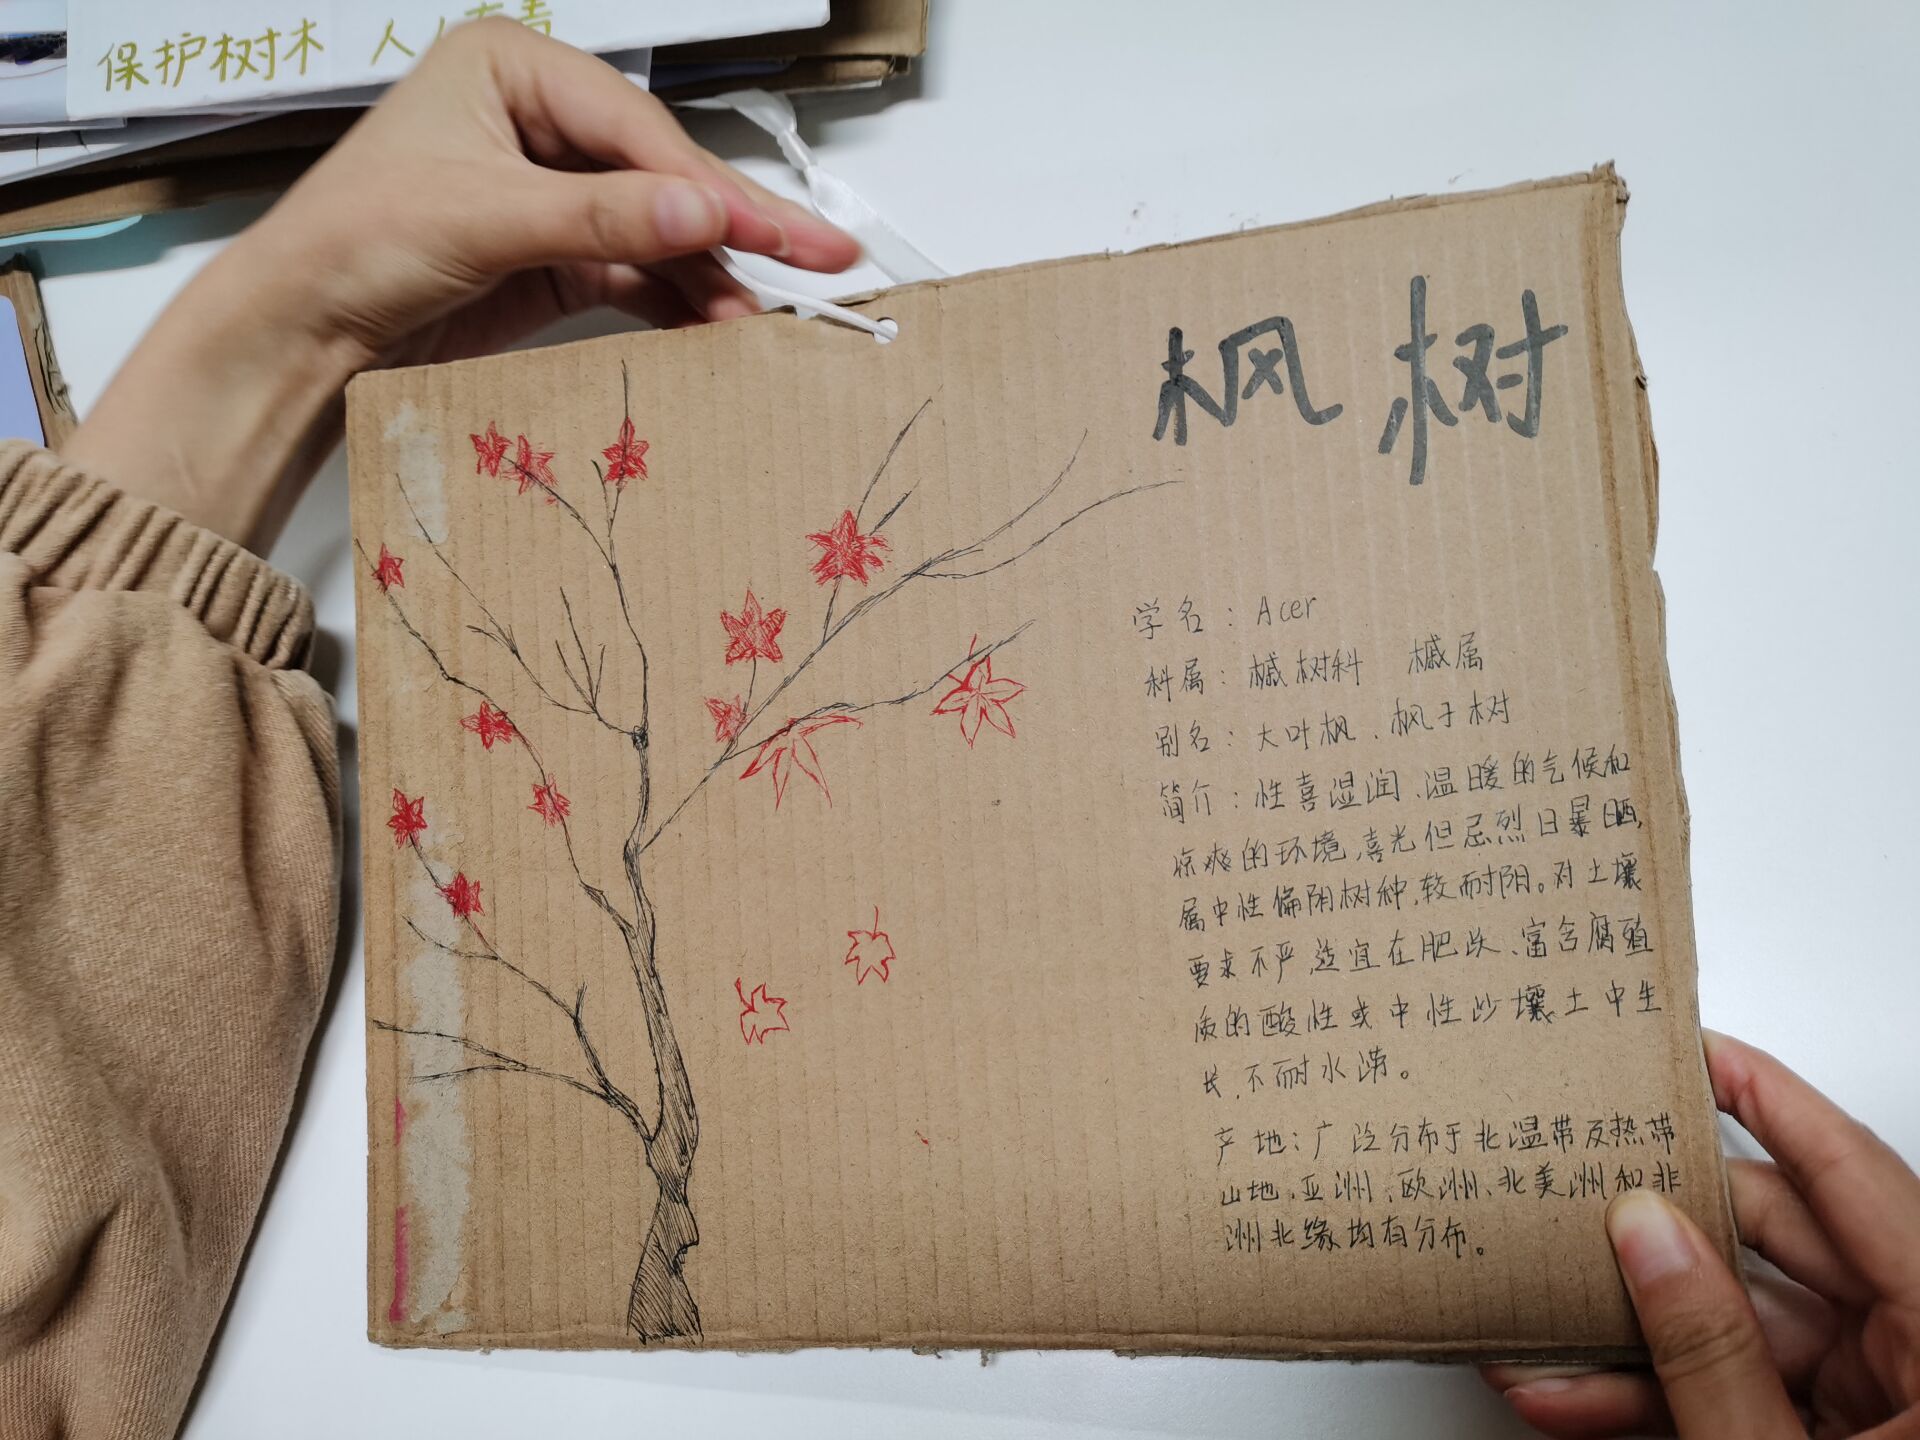 保护树木 人人有责
枫树
学名：Acer
科属：槭树科 槭属
别名：大叶枫、枫子树
简介：性喜湿润、温暖的气候和
凉爽的环境,喜光但忌烈日暴晒,
属中性偏阴树种,较耐阳。对土壤
要求不严,适宜在肥沃、富含腐殖
质的酸性或中性沙壤土中生
长,不耐水涝。
产地：广泛分布于北温带及热带
山地,亚洲、欧洲、北美洲和非
洲北缘均有分布。